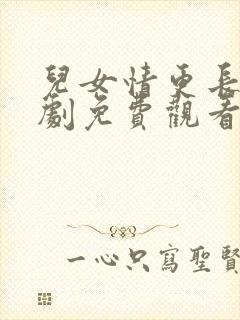 兒女情更長
劇免費觀看
一心只寫聖賢